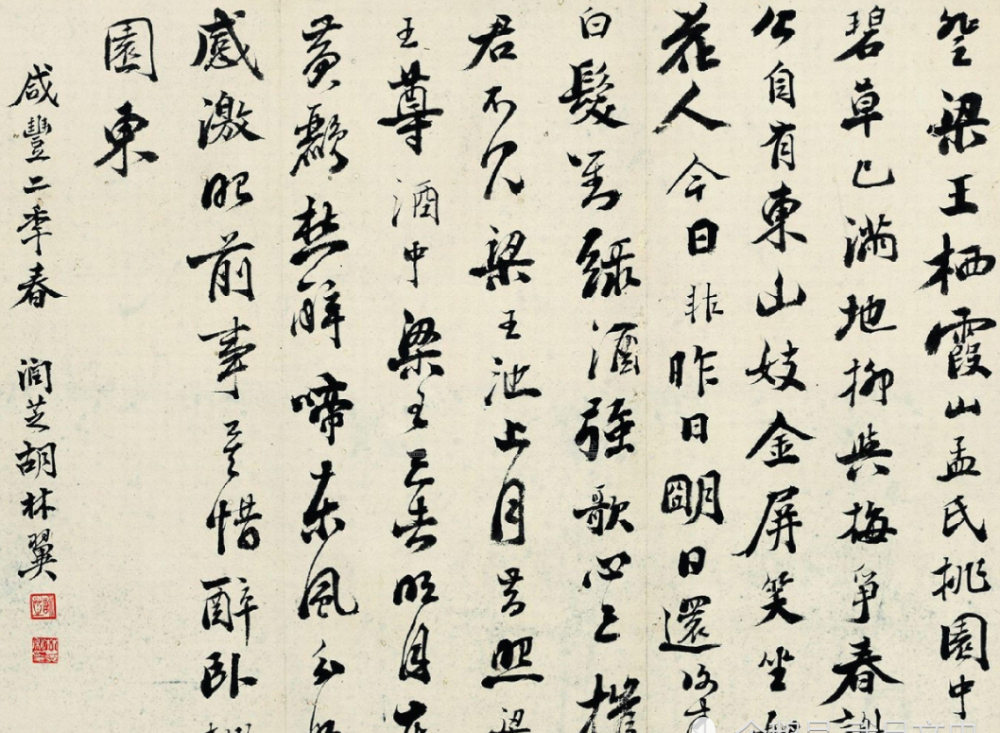 登梁王栖霞山孟氏桃園中
碧草已滿地柳與梅爭春謝
公自有東山妓金屏笑坐
花人今日非昨日朙日還復來
白髮對綠酒強歌心已摧
君不見梁王池上月昔照梁
王尊酒中梁王已去明月在
黃鸝愁醉啼春風分
感激眼前事莫惜醉卧
園東
咸豐二年春 潤芝胡林翼